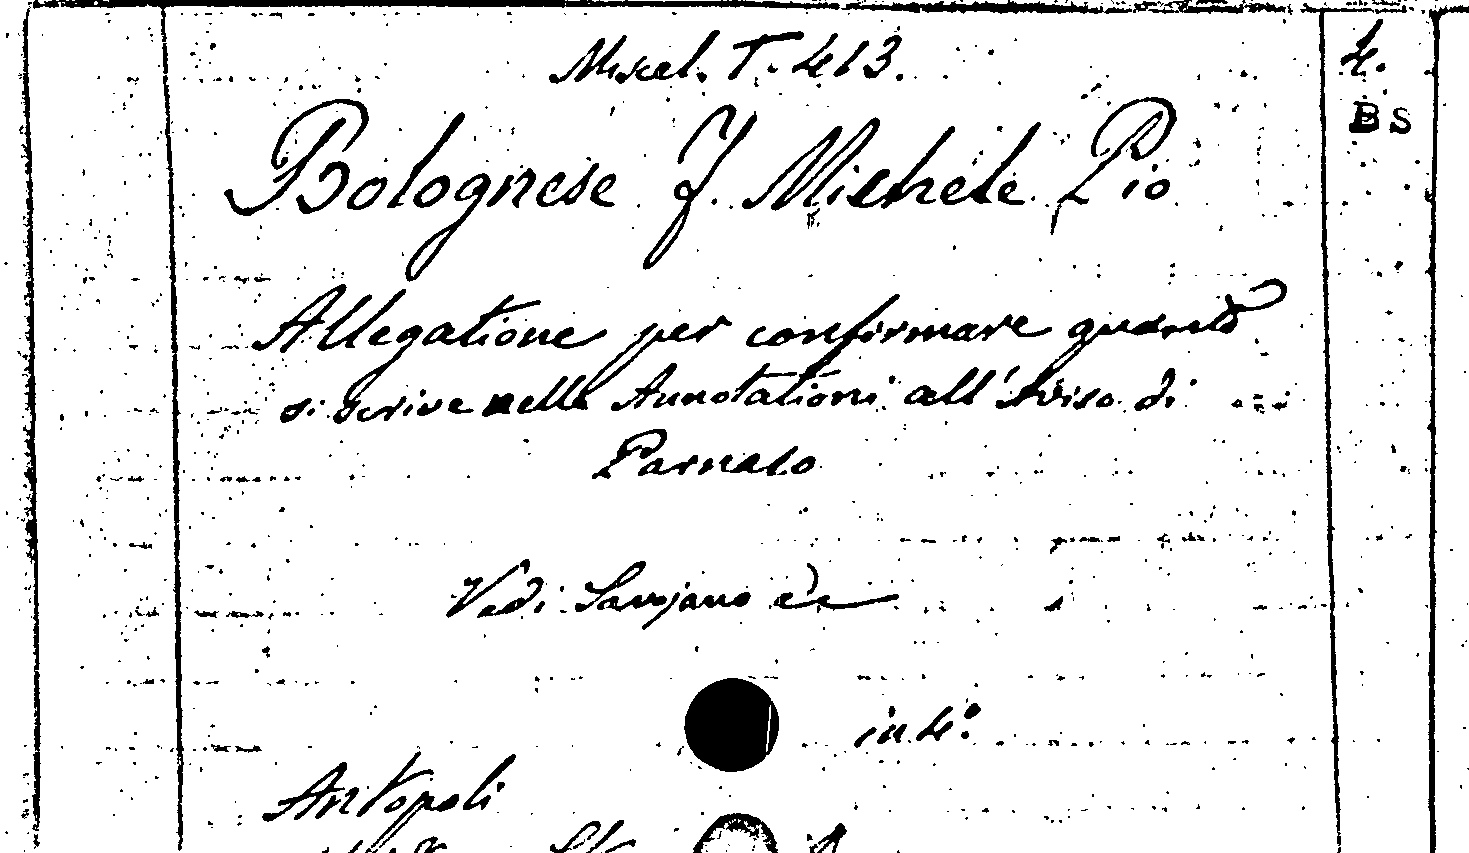 Miscel. T. 413.
4.
BS
Bolognese F. Michele Pio
Allegatione per confirmare quanto
si scrive nelle Annotationi all'Aviso di
Parnaso
Vedi Savojano &c
in 4.º
Antopoli